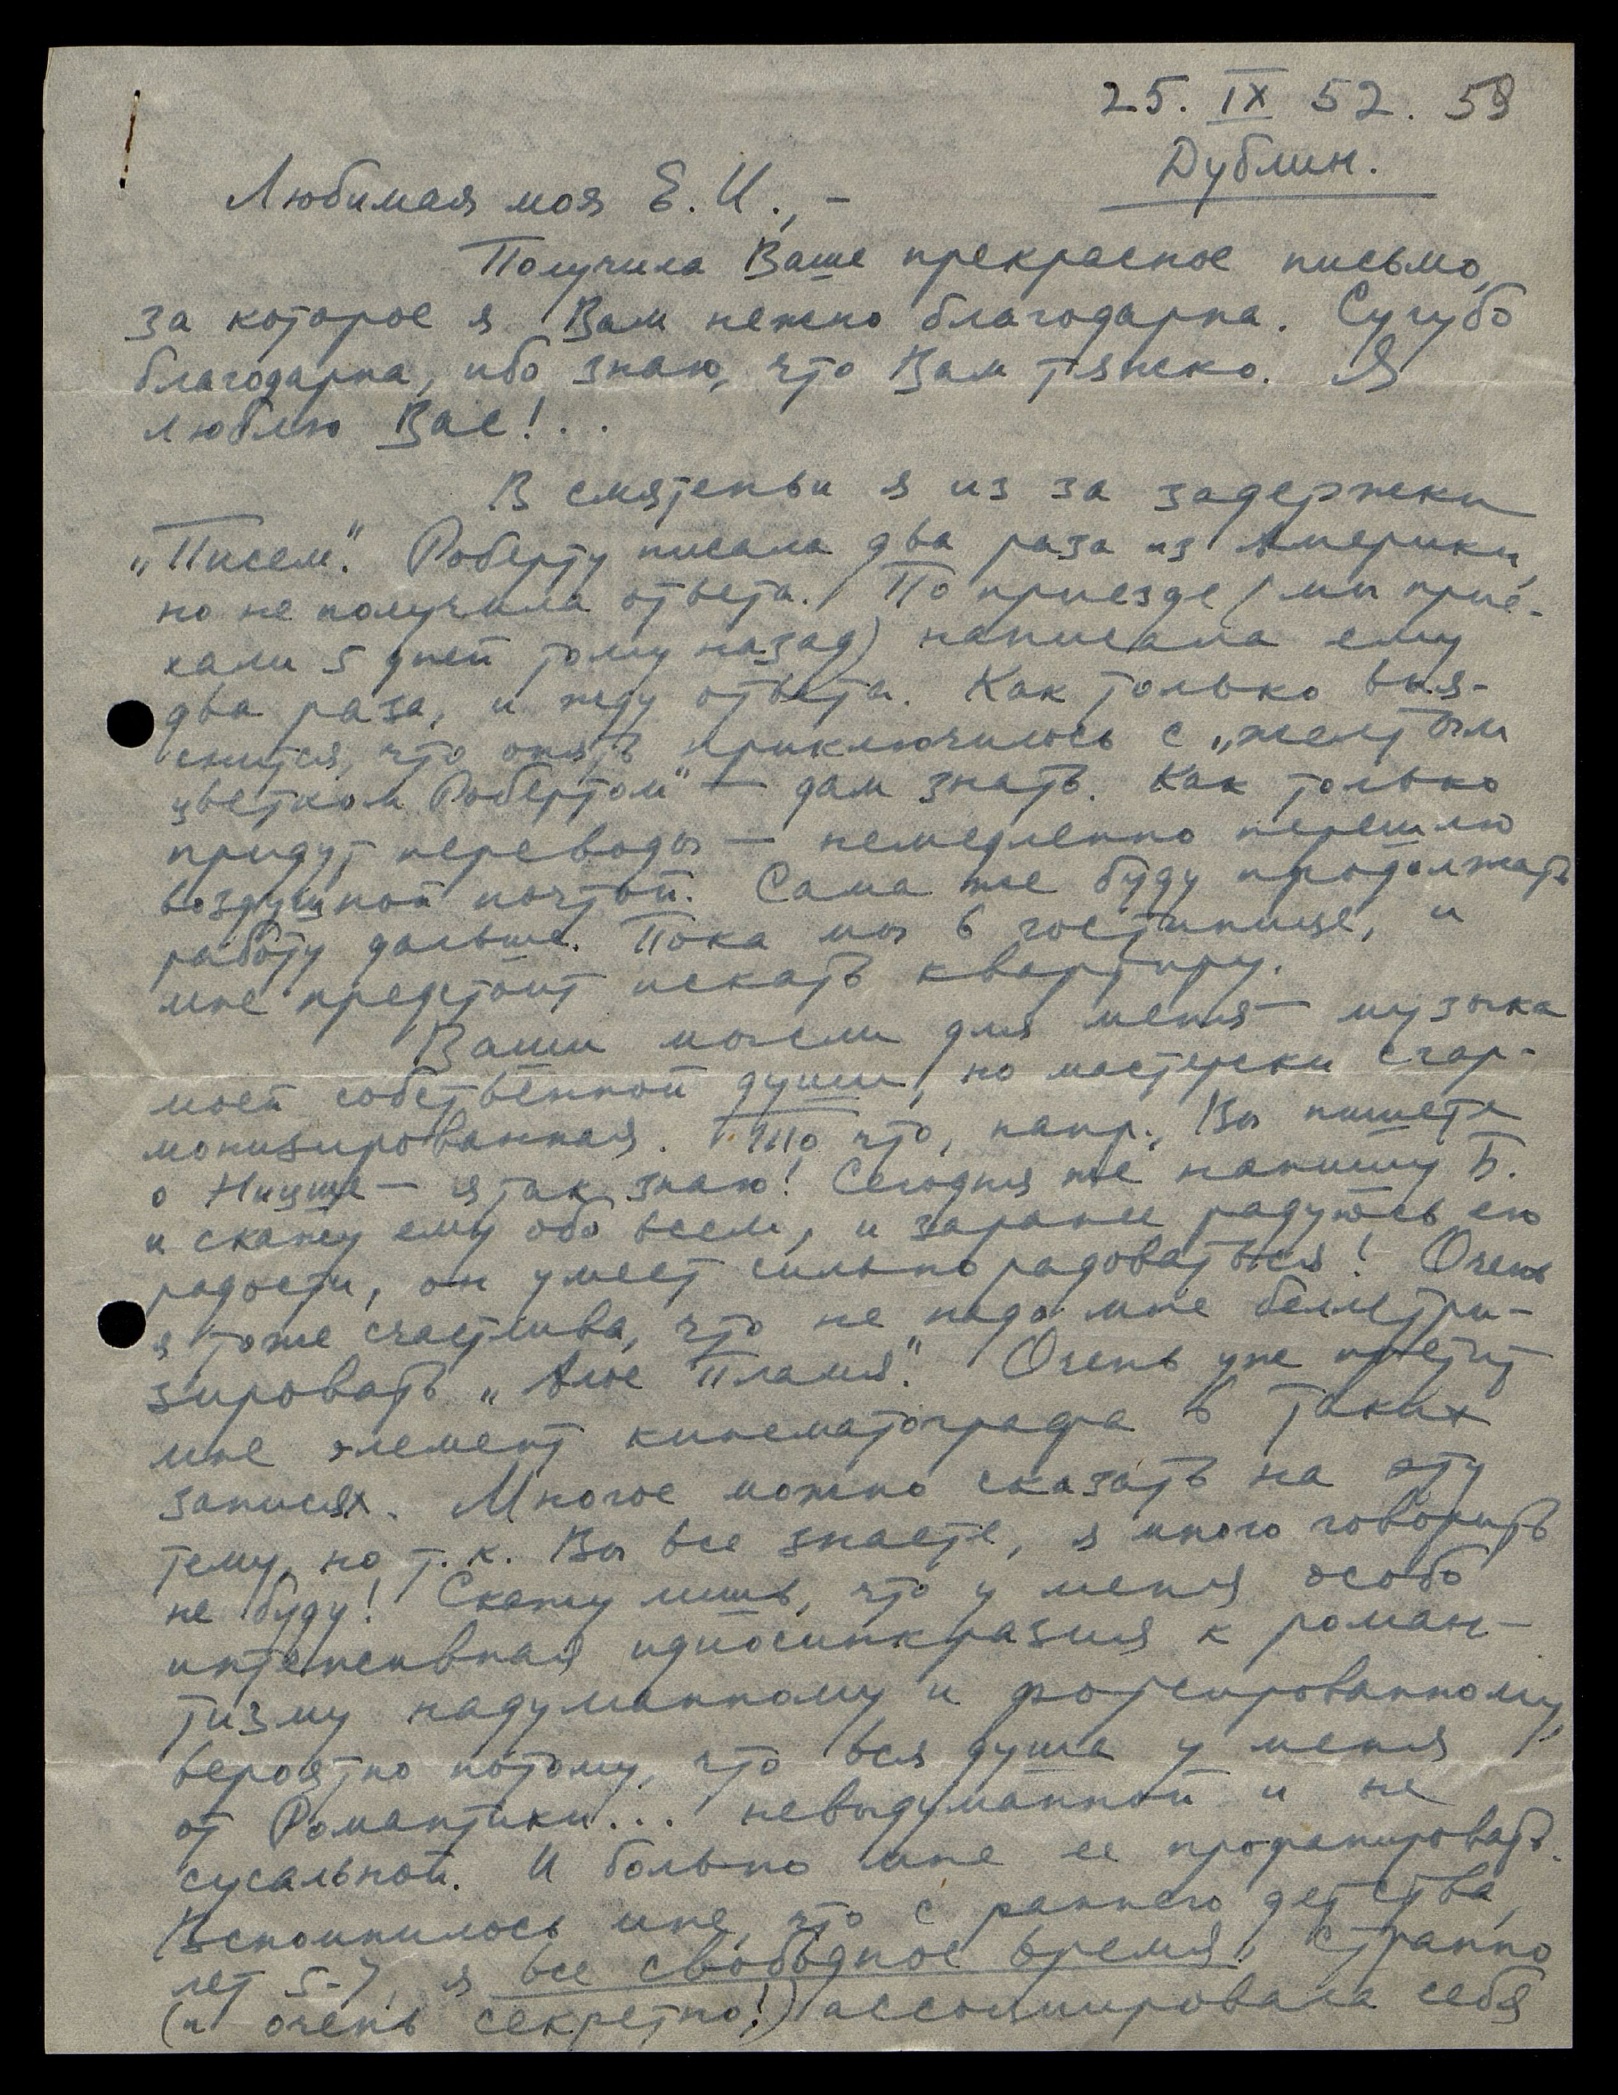 25. IX 52. 58
Дублин.
Любимая моя Е. И., –
Получила Ваше прекрасное письмо,
за которое я Вам нежно благодарна. Сугубо
благодарна, ибо знаю, что Вам тяжко. Я
люблю Вас!..
В смятеньи я из за задержки
„Писем". Роберту писала два раза из Америки,
но не получила ответа. По приезде (мы прие-
хали 5 дней тому назад) написала ему
два раза, и жду ответа. Как только выя-
снится, что опять приключилось с „желтым
цветком Робертом" – дам знать. Как только
придут переводы – немедленно перешлю
воздушной почтой. Сама же буду продолжать
работу дальше. Пока мы в гостинице, и
мне предстоит искать квартиру.
Ваши мысли для меня – музыка
моей собственной души, но мастерски сгар-
монизированная. То что, напр., Вы пишете
о Ницше – я так знаю! Сегодня же напишу Б.
и скажу ему обо всем, и заранее радуюсь его
радости, он умеет сильно радоваться! Очень
я тоже счастлива, что не надо мне беллетри-
зировать „Алое Пламя". Очень уже претит
мне элемент кинематографа в таких
записях. Многое можно сказать на эту
тему, но т. к. Вы все знаете, я много говорить
не буду! Скажу лишь, что у меня особо
интенсивная идиосинкразия к роман-
тизму надуманному и форсированному,
вероятно потому, что вся душа у меня
от Романтики... невыдуманной и не
сусальной. И больно мне ее профанировать.
Вспомнилось мне, что с раннего детства,
лет 5-7, я все свободное время, странно
(и очень секретно!) ассоциировала себя